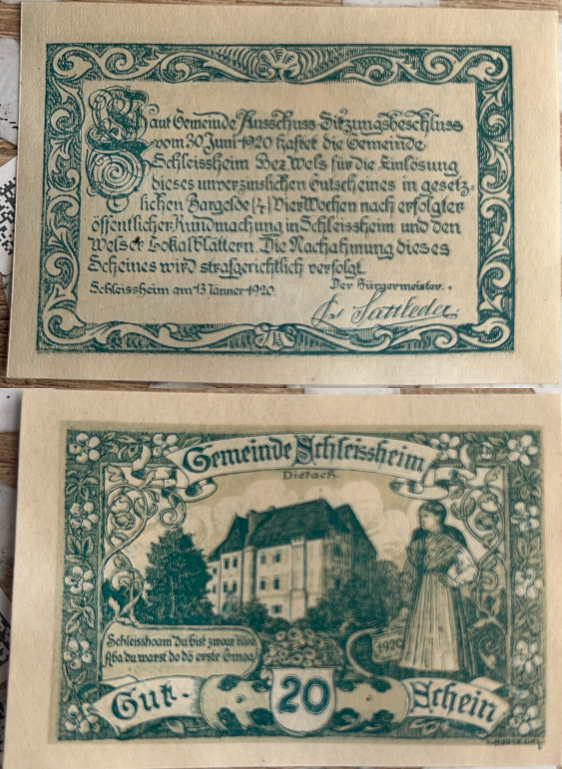 Laut Gemeinde Ausschuss-Sitzungsbeschluss
vom 30 Juni 1920 haftet die Gemeinde
Schleissheim Bez Wels für die Einlösung
dieses unverzinslichen Gutscheines in gesetz-
lichen Bargelde (4) Vier Wochen nach erfolgter
öffentlicher Kundmachung in Schleissheim und den
Welser Lokalblättern. Die Nachahmung dieses
Scheines wird strafgerichtlich verfolgt.
Schleissheim am 13 Jänner 1920.
Der Bürgermeister.
Gemeinde Schleissheim
Dietach
Schleisshoam du bist zwoar
Aba du warst do dö erste Gmoa
1920
Gut-
20
Schein